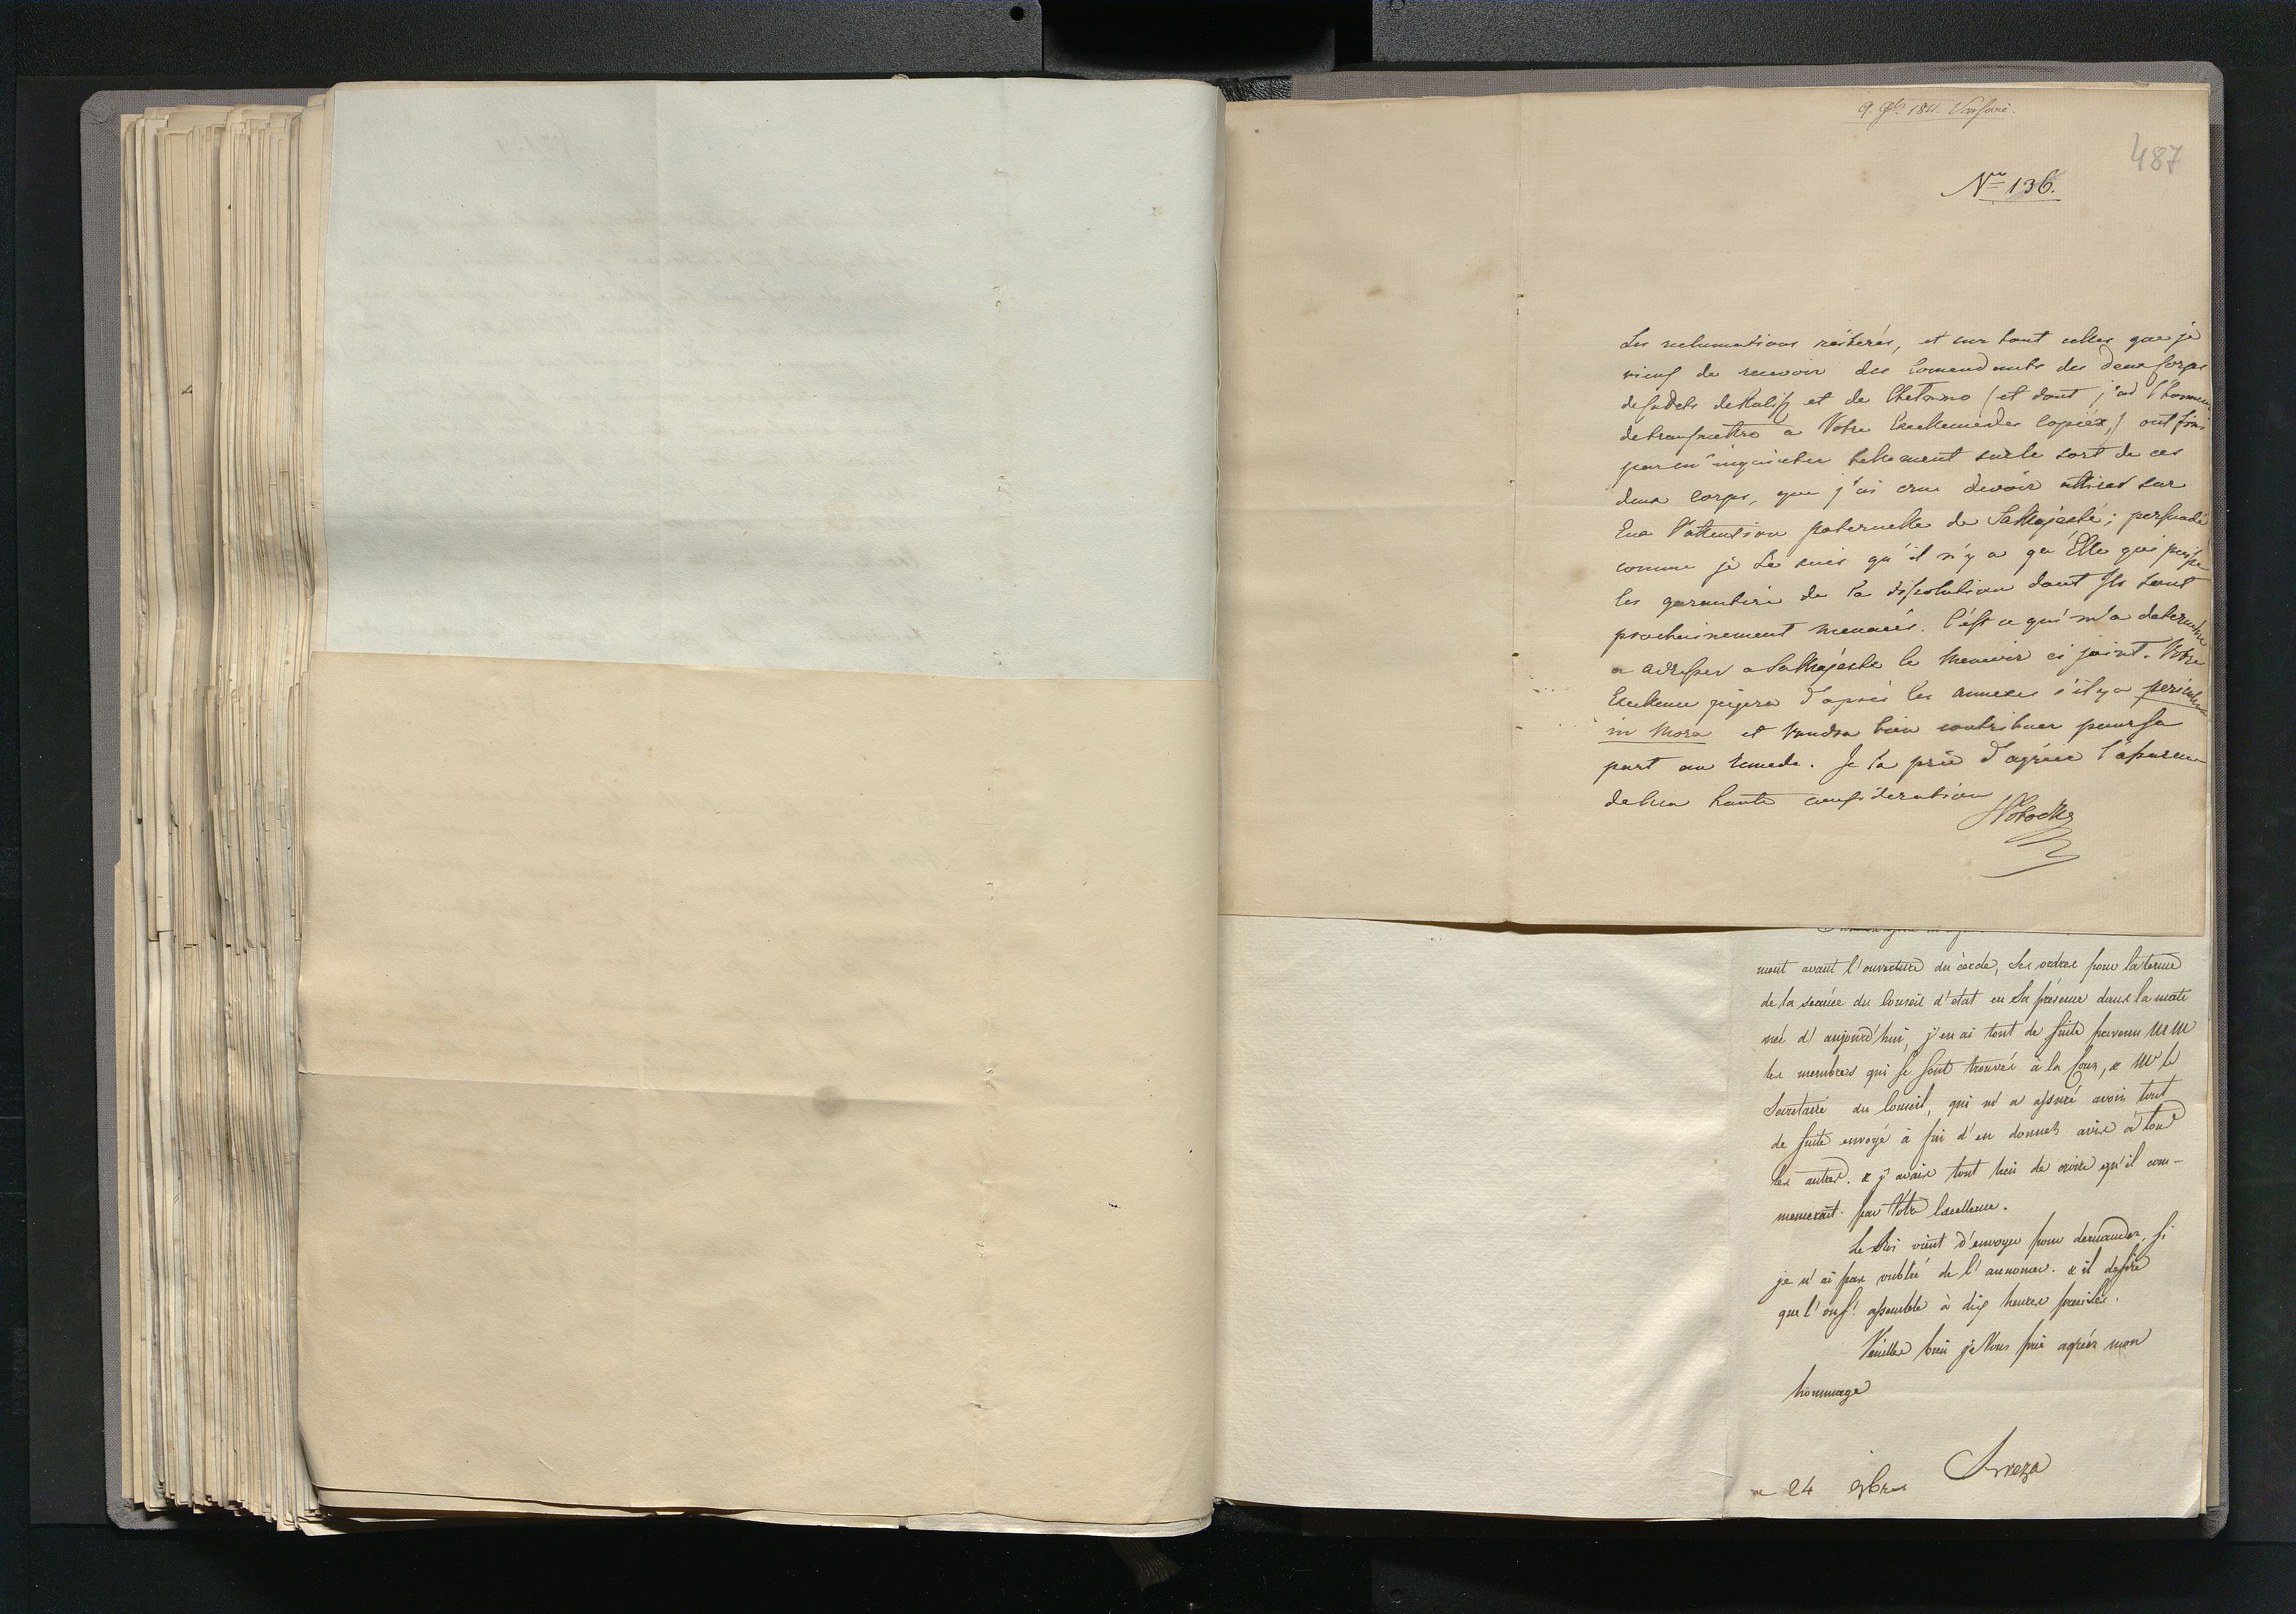 9. 9bre 1811. Varsovie.
487
Nro 136.
Les reclamations réiterés, et sur tout celles que je
viens de recevoir des Comendants des deux Corps
de Cadets de Kalisz et de Chelmno (et dont j'ai l'honneur
de transmettre a Votre Excellence des copiéx,) ont fini
par m'inquieter tellement sur le sort de ces
deux Corps, que j'ai crue devoir attirer sur
Eux l'attention paternelle de Sa Majesté; persuadé
comme je Le suis qu'il n'y a qu'Elle qui puisse
les garantire de la dissolution dont Ils sont
prochainement menacés. C'est ce qui m'a determiné
a adresser a Sa Majesté le Memoir ci joint. Votre
Excellence jugera d'après les annexes s'il y a periculum
in Mora et voudra bien contribuer pour sa
part au remede. Je la prie d'agréer l'assurence
de ma haute consideration
SPotocki
ment avant l'ouverture du cercle, Ses ordres pour la tenue
de la seance du Conseil d'etat en Sa présence dans la mati
née d'aujourd'hui, j'en ai tout de suite prevenu MM
les membres qui se sont trouvés à la Cour, & Mr le
Secretaire du Conseil, qui m'a assuré avoir tout
de suite envoyé à fin d'en donner avis à tous
les autres. & j'avais tout lieu de croire qu'il com-
menceroit par Votre Excellence.
Le Roi vient d'envoyer pour demander, si
je n'ai pas oublié de l'annoncer. & il desire
que l'on s'assemble à dix heures precises.
Veuillez bien je Vous prie agréér mon
hommage
Breza
a 24 9bres